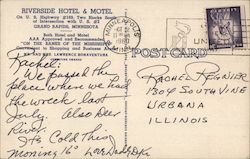 RIVERSIDE HOTEL & MOTEL
On U. S. Highway #169, Two Blocks South
of Intersection with U. S. #2
GRAND RAPIDS, MINNESOTA
Both Hotel and Motel
AAA Approved and Recommended
"ON THE BANKS OF THE MISSISSIPPI"
MR. AND MRS. LAWRENCE BONAVENTURE
MINNEAPOLIS
MINN.
1960
POST CARD
Rachel:
We passed the
place where we had
the wreck last
July. Also Deer
River.
Its Cold This
morning 16° Love Daddy
Rachel Regnier
1304 South Vine
Urbana
Illinois